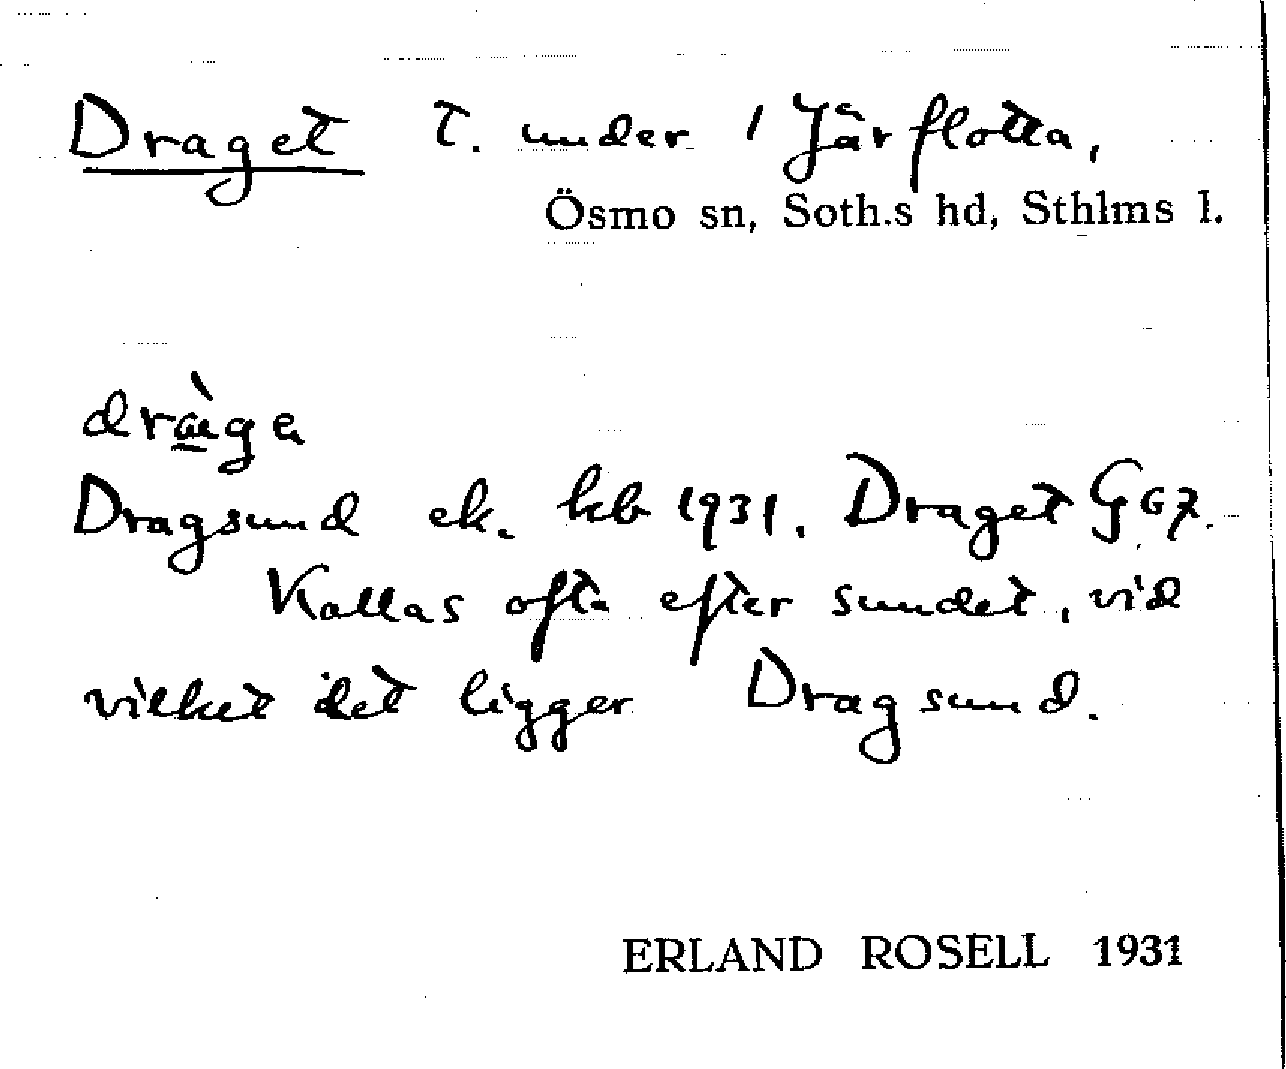 Draget T. under 1 Järflotta,
Ösmo sn, Soth.s hd, Sthlms l.
dràge
Dragsund ek. kb 1931. Draget G67.
Kallas ofta efter sundet, vid
vilket det ligger Dragsund.
ERLAND ROSELL 1931